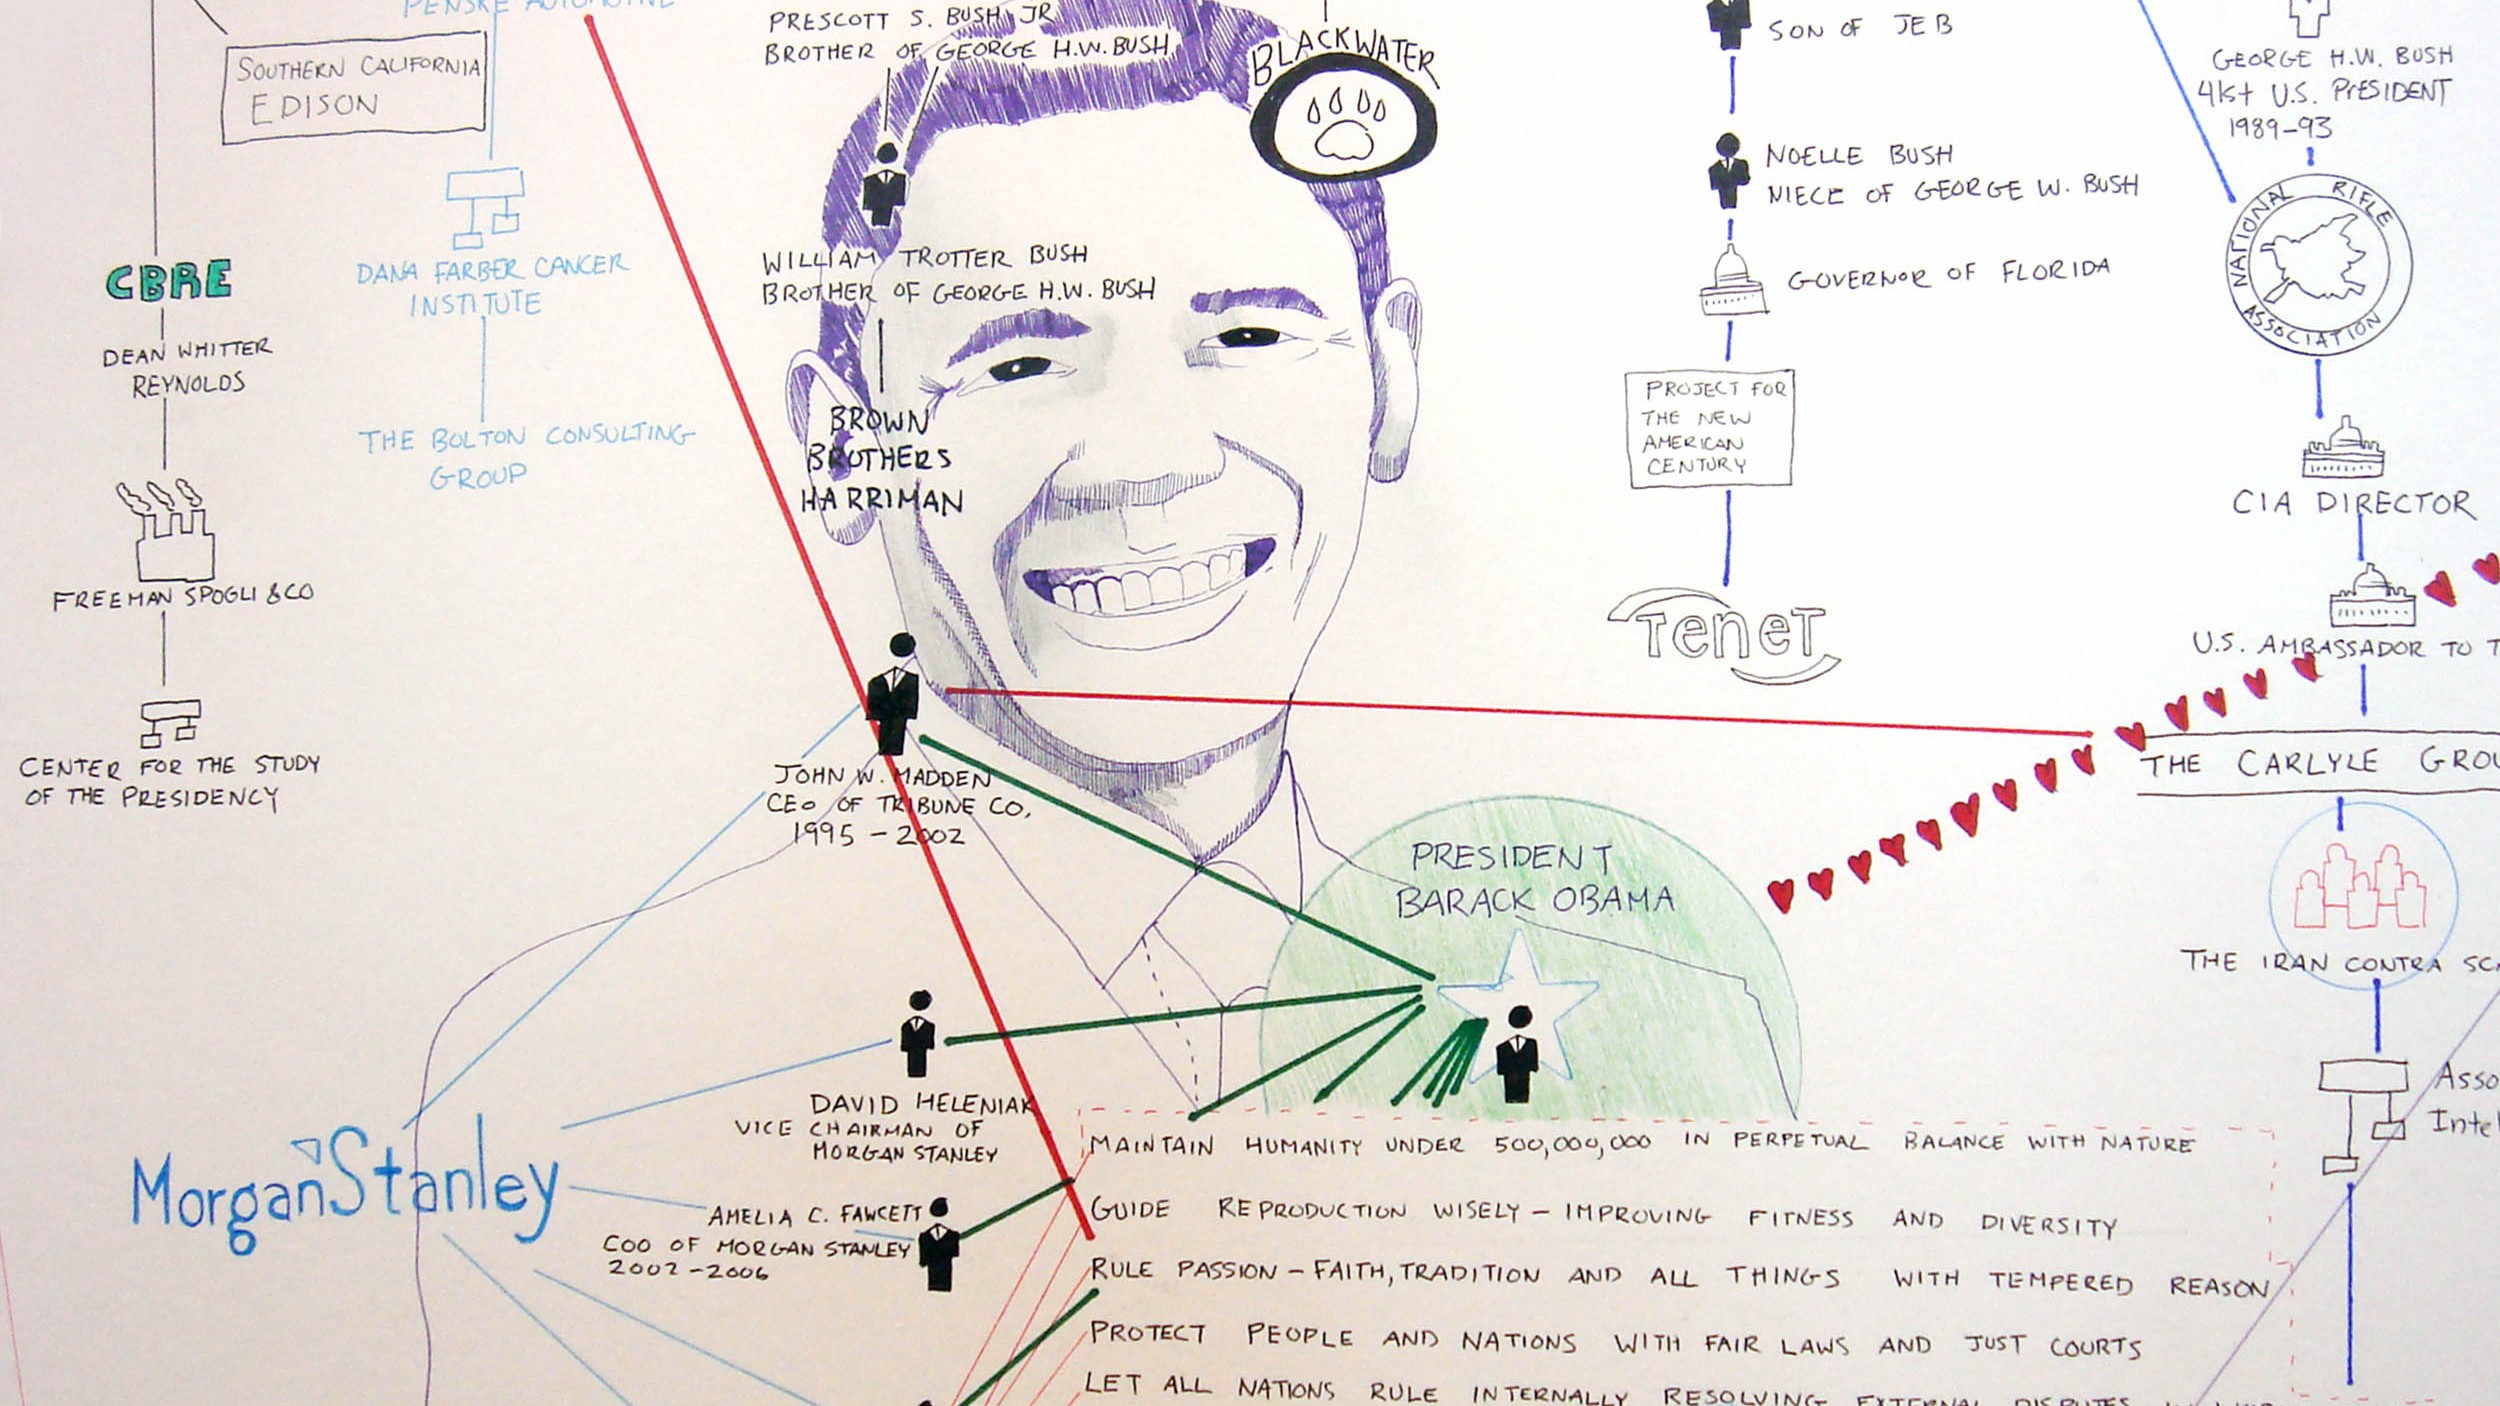 PENSKE AUTOMOTIVE
SOUTHERN CALIFORNIA
EDISON
CBRE
DEAN WHITTER
REYNOLDS
FREEMAN SPOGLI & CO
CENTER FOR THE STUDY
OF THE PRESIDENCY
DANA FARBER CANCER
INSTITUTE
THE BOLTON CONSULTING
GROUP
PRESCOTT S. BUSH JR
BROTHER OF GEORGE H.W. BUSH
WILLIAM TROTTER BUSH
BROTHER OF GEORGE H.W. BUSH
BROWN
BROTHERS
HARRIMAN
BLACKWATER
SON OF JEB
NOELLE BUSH
NIECE OF GEORGE W. BUSH
GOVERNOR OF FLORIDA
PROJECT FOR
THE NEW
AMERICAN
CENTURY
TeneT
GEORGE H.W. BUSH
41st U.S. PrESIDENT
1989-93
NATIONAL RIFLE
ASSOCIATION
CIA DIRECTOR
U.S. AMBASSADOR TO T
THE CARLYLE GROU
THE IRAN CONTRA SCA
Asso
Inte
JOHN W. MADDEN
CEO OF TRIBUNE CO,
1995 - 2002
PRESIDENT
BARACK OBAMA
DAVID HELENIAK
VICE CHAIRMAN OF
MORGAN STANLEY
MorganStanley
AMELIA C. FAWCETT
COO OF MORGAN STANLEY
2002-2006
MAINTAIN HUMANITY UNDER 500,000,000 IN PERPETUAL BALANCE WITH NATURE
GUIDE REPRODUCTION WISELY - IMPROVING FITNESS AND DIVERSITY
RULE PASSION - FAITH, TRADITION AND ALL THINGS WITH TEMPERED REASON
PROTECT PEOPLE AND NATIONS WITH FAIR LAWS AND JUST COURTS
LET ALL NATIONS RULE INTERNALLY RESOLVING EXTERNAL DISPUTES